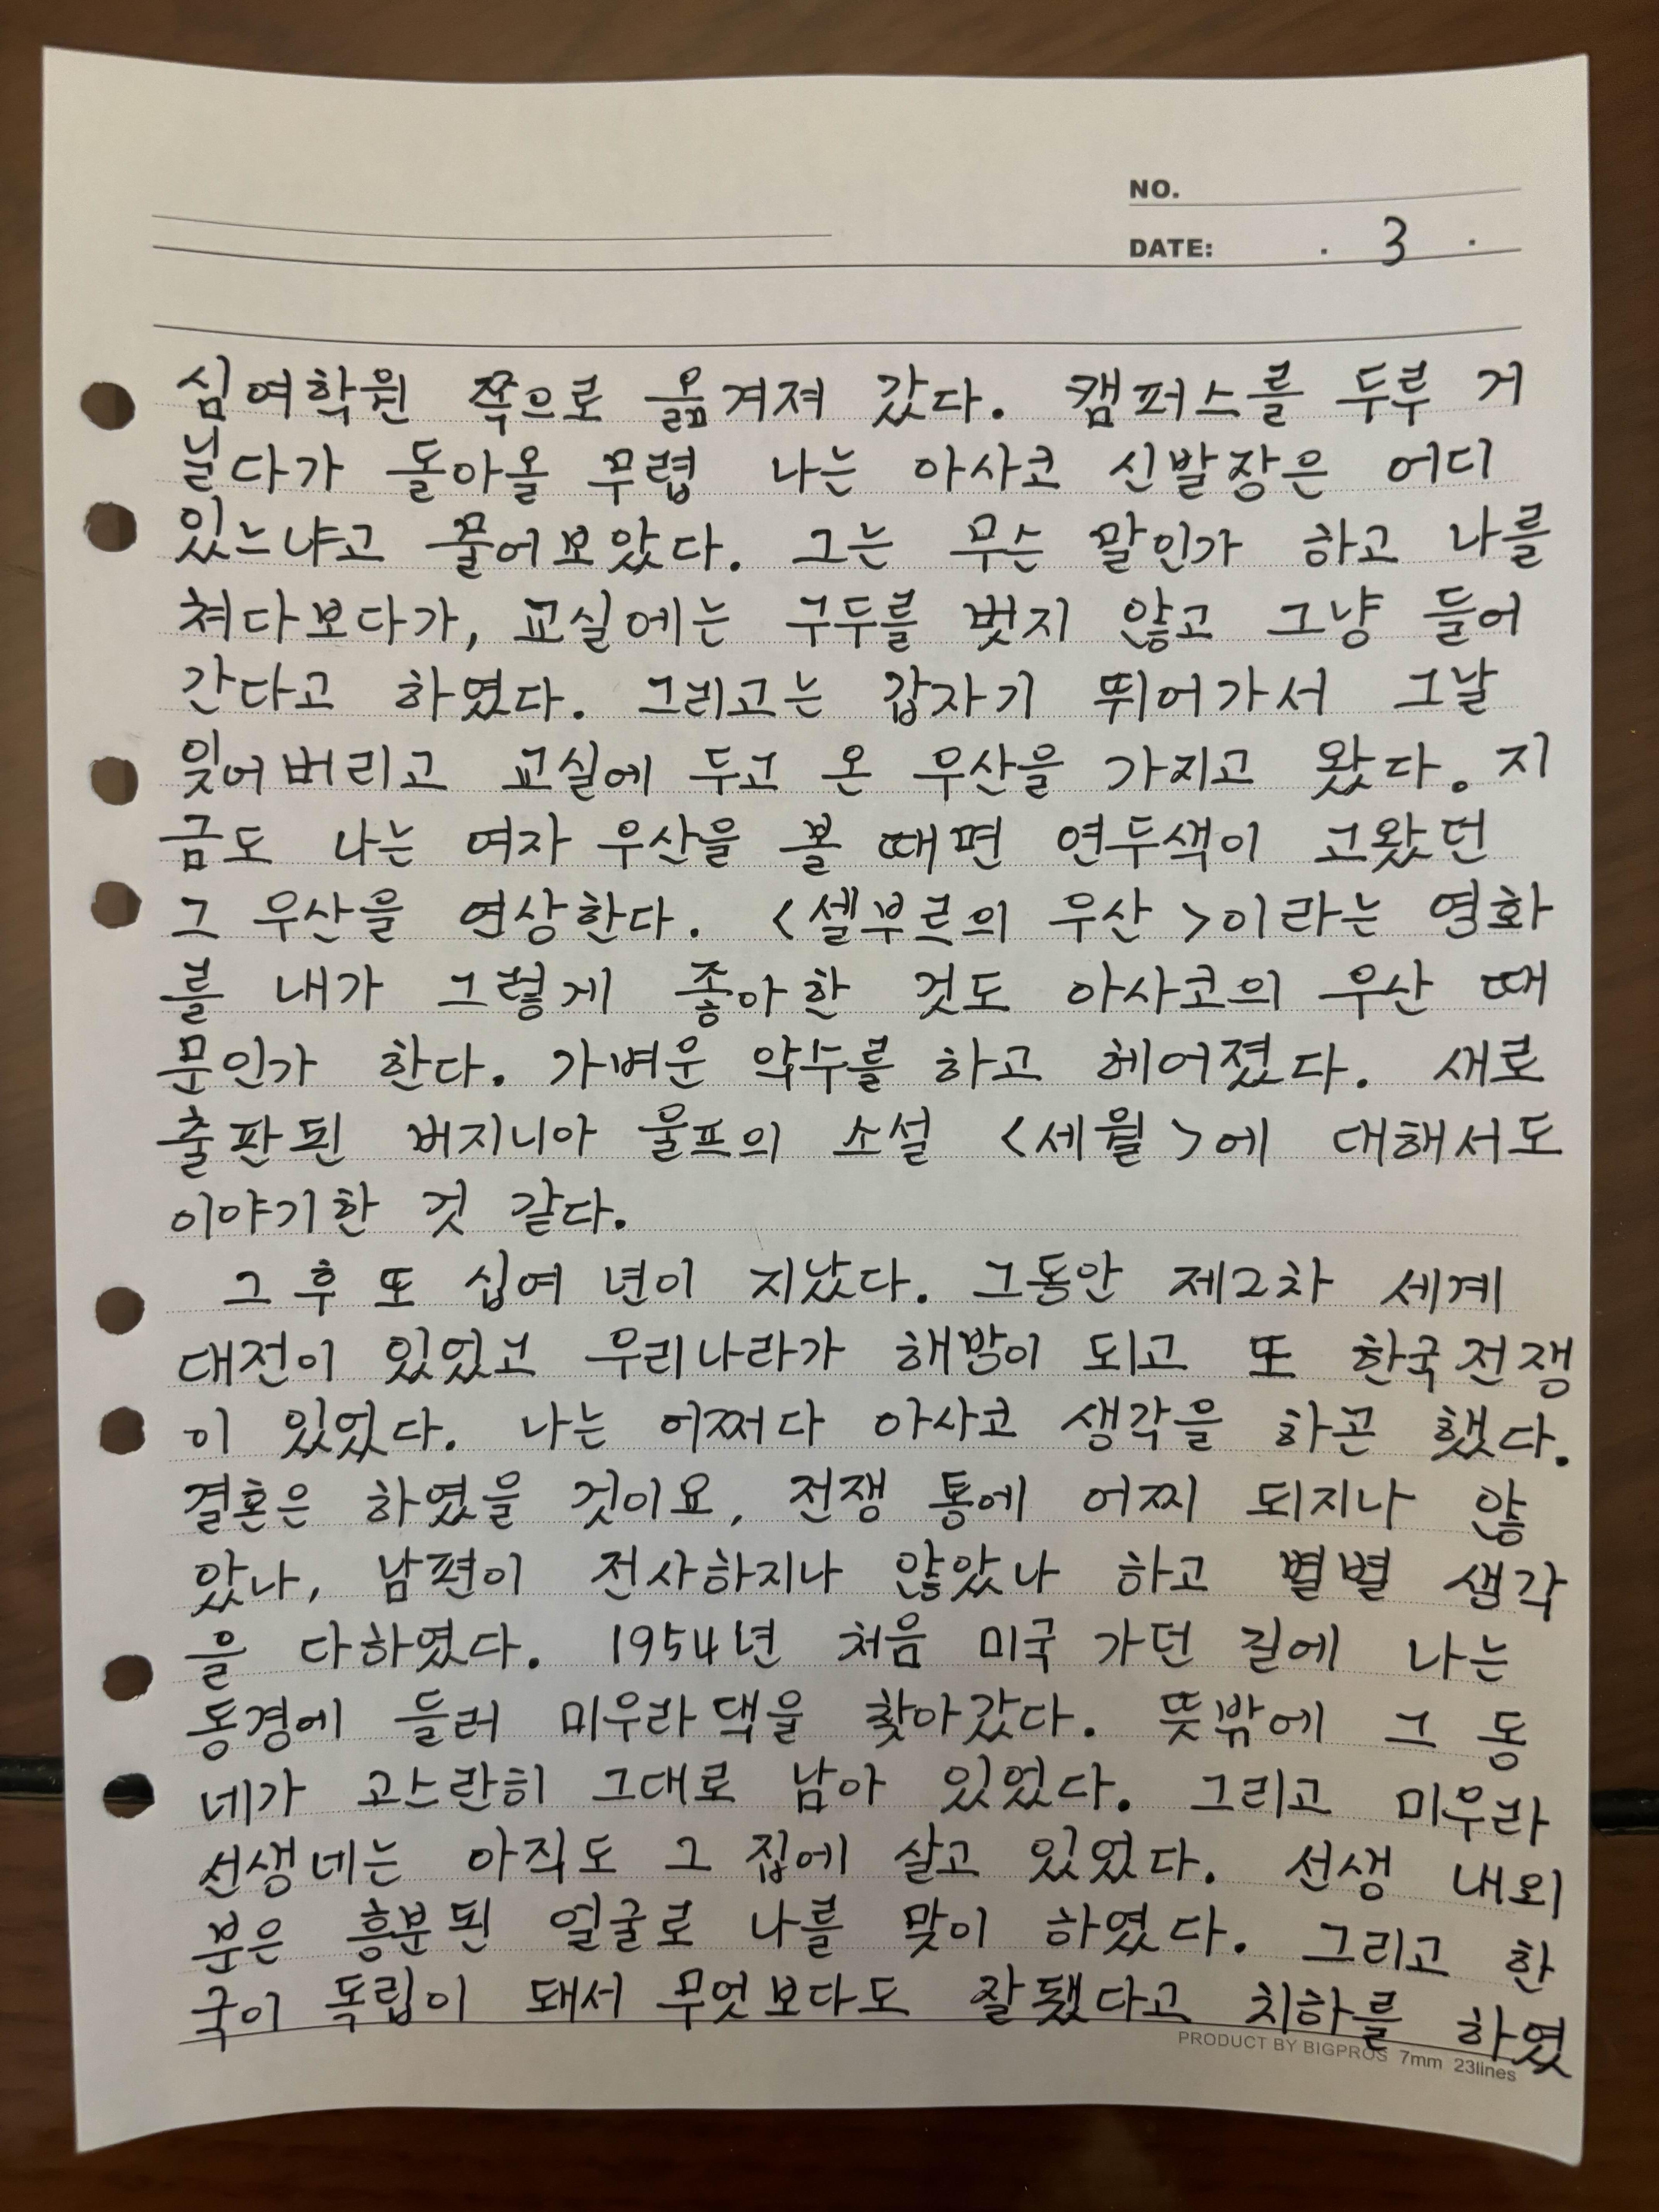 NO.
DATE: . 3 .
심여학원 쪽으로 옮겨져 갔다. 캠퍼스를 두루 거
닐다가 돌아올 무렵 나는 아사코 신발장은 어디
있느냐고 물어보았다. 그는 무슨 말인가 하고 나를
쳐다보다가, 교실에는 구두를 벗지 않고 그냥 들어
간다고 하였다. 그리고는 갑자기 뛰어가서 그날
잊어버리고 교실에 두고 온 우산을 가지고 왔다. 지
금도 나는 여자 우산을 볼 때면 연두색이 고왔던
그 우산을 연상한다. <셀부르의 우산>이라는 영화
를 내가 그렇게 좋아한 것도 아사코의 우산 때
문인가 한다. 가벼운 악수를 하고 헤어졌다. 새로
출판된 버지니아 울프의 소설 <세월>에 대해서도
이야기한 것 같다.
그 후 또 십여 년이 지났다. 그동안 제2차 세계
대전이 있었고 우리나라가 해방이 되고 또 한국전쟁
이 있었다. 나는 어쩌다 아사코 생각을 하곤 했다.
결혼은 하였을 것이요, 전쟁 통에 어찌 되지나 않
았나, 남편이 전사하지나 않았나 하고 별별 생각
을 다하였다. 1954년 처음 미국 가던 길에 나는
동경에 들러 미우라댁을 찾아갔다. 뜻밖에 그 동
네가 고스란히 그대로 남아 있었다. 그리고 미우라
선생네는 아직도 그 집에 살고 있었다. 선생 내외
분은 흥분된 얼굴로 나를 맞이 하였다. 그리고 한
국이 독립이 돼서 무엇보다도 잘됐다고 치하를 하였
PRODUCT BY BIGPROS 7mm 23lines